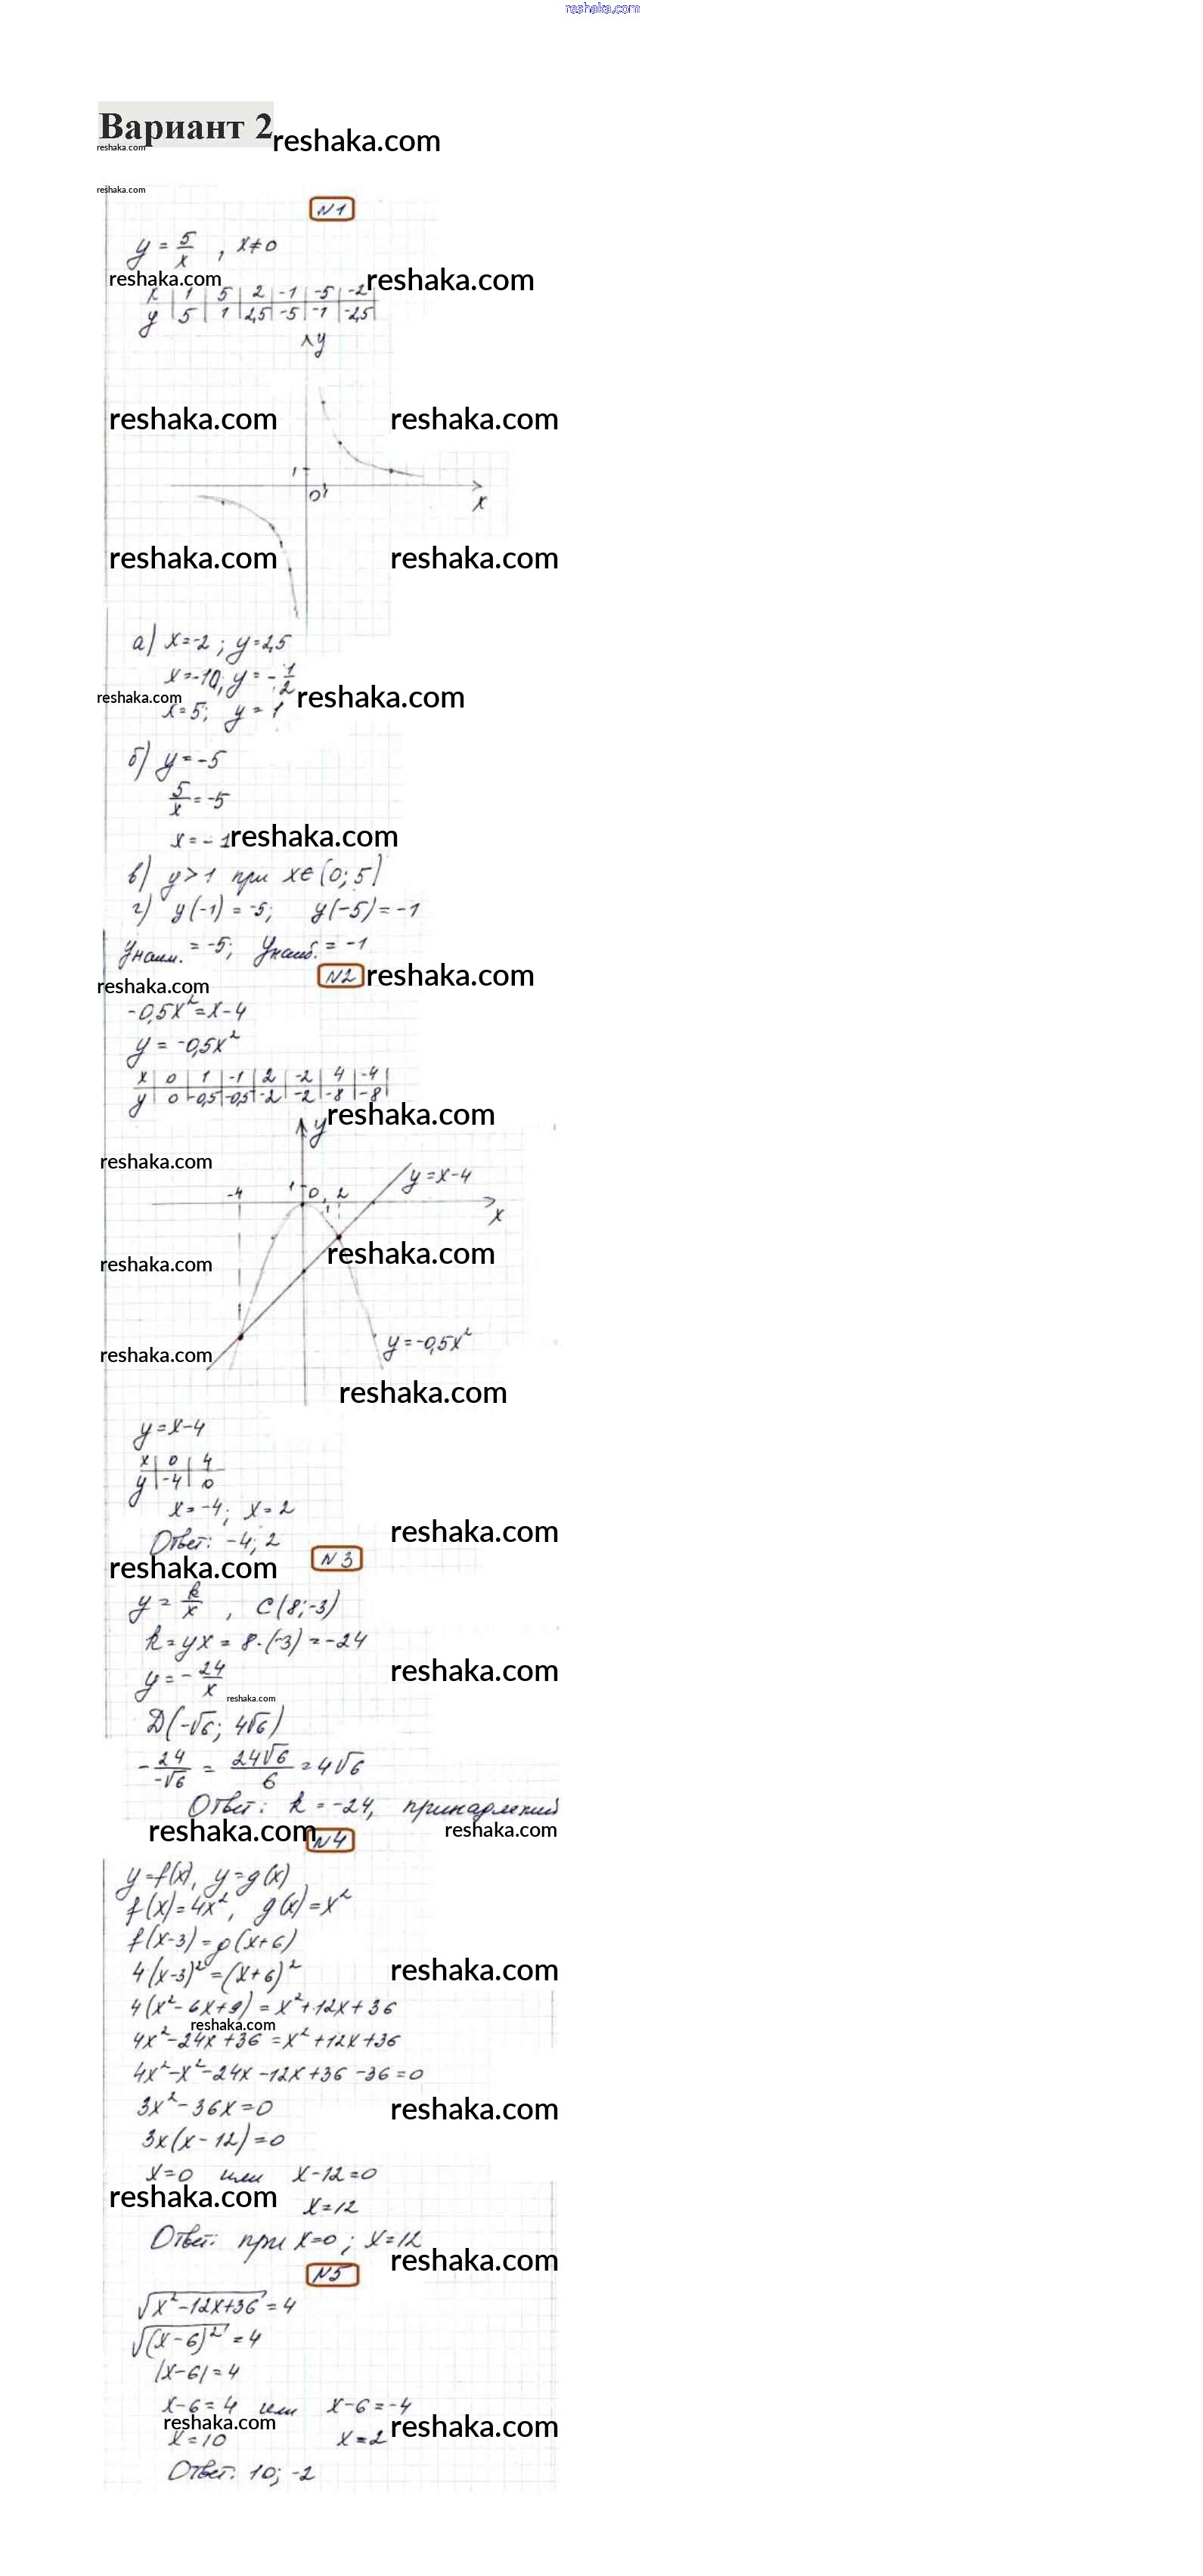 reshaka.com
Вариант 2
reshaka.com
reshaka.com
reshaka.com
N1
y = 5/x , x≠0
reshaka.com reshaka.com
x | 1 | 5 | 2 | -1 | -5 | -2
y | 5 | 1 | 2,5 | -5 | -1 | -2,5
y
reshaka.com reshaka.com
1
0 1
x
reshaka.com reshaka.com
а) x=-2; y=2,5
x=-10; y=-1/2
reshaka.com reshaka.com
x=5; y=1
б) y=-5
5/x=-5
x=-1
reshaka.com
в) y>1 при x∈(0; 5)
г) y(-1) = -5; y(-5) = -1
yнаим. = -5; yнаиб. = -1
N2 reshaka.com
reshaka.com
-0,5x²=x-4
y = -0,5x²
x | 0 | 1 | -1 | 2 | -2 | 4 | -4
y | 0 | -0,5 | -0,5 | -2 | -2 | -8 | -8
reshaka.com
y
reshaka.com
y=x-4
-4 1 0 1 2
x
reshaka.com
reshaka.com
y=-0,5x²
reshaka.com
reshaka.com
y=x-4
x | 0 | 4
y | -4 | 0
x=-4; x=2
reshaka.com
Ответ: -4; 2
N3
reshaka.com
y = k/x , C(8;-3)
k=yx = 8·(-3) = -24
reshaka.com
y = -24/x
reshaka.com
D(-√6; 4√6)
-24/-√6 = 24√6/6 = 4√6
Ответ: k = -24, принадлежит
reshaka.com reshaka.com
N4
y=f(x), y=g(x)
f(x)=4x², g(x)=x²
f(x-3)=g(x+6)
4(x-3)²=(x+6)²
reshaka.com
4(x²-6x+9) = x²+12x+36
reshaka.com
4x²-24x+36=x²+12x+36
4x²-x²-24x-12x+36-36=0
3x²-36x=0
reshaka.com
3x(x-12)=0
x=0 или x-12=0
reshaka.com
x=12
Ответ: при x=0; x=12
reshaka.com
N5
√x²-12x+36=4
√(x-6)²=4
|x-6|=4
x-6=4 или x-6=-4
reshaka.com reshaka.com
x=10 x=2
Ответ: 10; -2